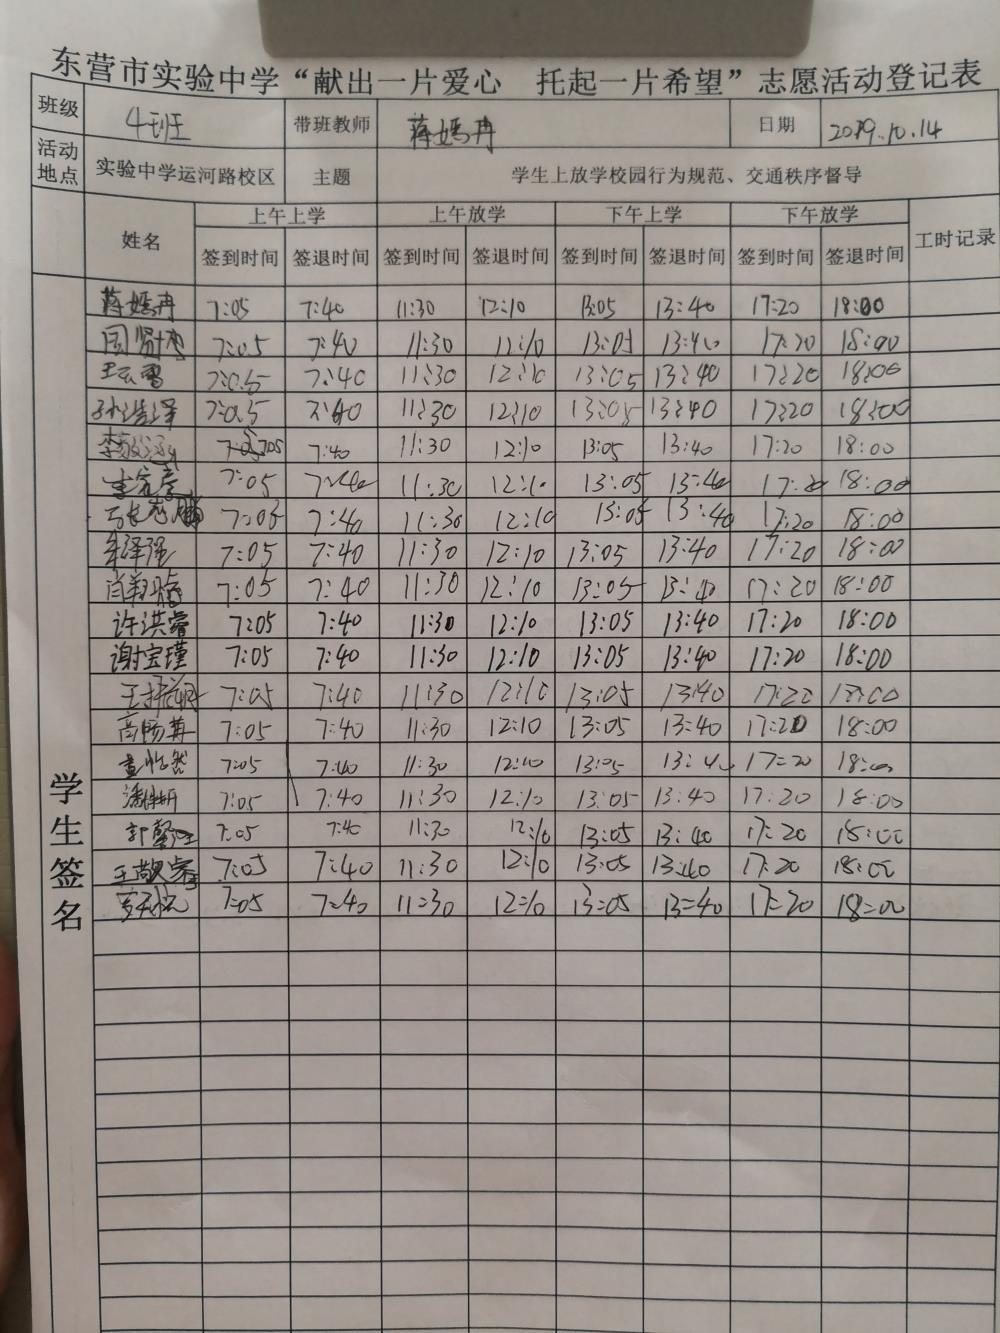 东营市实验中学“献出一片爱心 托起一片希望”志愿活动登记表
班级 4班 带班教师 蒋嫣冉 日期 2019.10.14
活动地点 实验中学运河路校区 主题 学生上放学校园行为规范、交通秩序督导
姓名 上午上学 上午放学 下午上学 下午放学 工时记录
签到时间 签退时间 签到时间 签退时间 签到时间 签退时间 签到时间 签退时间
学生签名
蒋嫣冉 7:05 7:40 11:30 12:10 13:05 13:40 17:20 18:00
7:05 7:40 11:30 12:10 13:05 13:40 17:20 18:00
7:05 7:40 11:30 12:10 13:05 13:40 17:20 18:00
7:05 7:40 11:30 12:10 13:05 13:40 17:20 18:00
7:05 7:40 11:30 12:10 13:05 13:40 17:20 18:00
7:05 7:40 11:30 12:10 13:05 13:40 17:20 18:00
7:05 7:40 11:30 12:10 13:05 13:40 17:20 18:00
朱泽强 7:05 7:40 11:30 12:10 13:05 13:40 17:20 18:00
7:05 7:40 11:30 12:10 13:05 13:40 17:20 18:00
许洪睿 7:05 7:40 11:30 12:10 13:05 13:40 17:20 18:00
谢宝瑾 7:05 7:40 11:30 12:10 13:05 13:40 17:20 18:00
7:05 7:40 11:30 12:10 13:05 13:40 17:20 18:00
高畅苒 7:05 7:40 11:30 12:10 13:05 13:40 17:20 18:00
7:05 7:40 11:30 12:10 13:05 13:40 17:20 18:00
7:05 7:40 11:30 12:10 13:05 13:40 17:20 18:00
7:05 7:40 11:30 12:10 13:05 13:40 17:20 18:00
王敬睿 7:05 7:40 11:30 12:10 13:05 13:40 17:20 18:00
7:05 7:40 11:30 12:10 13:05 13:40 17:20 18:00